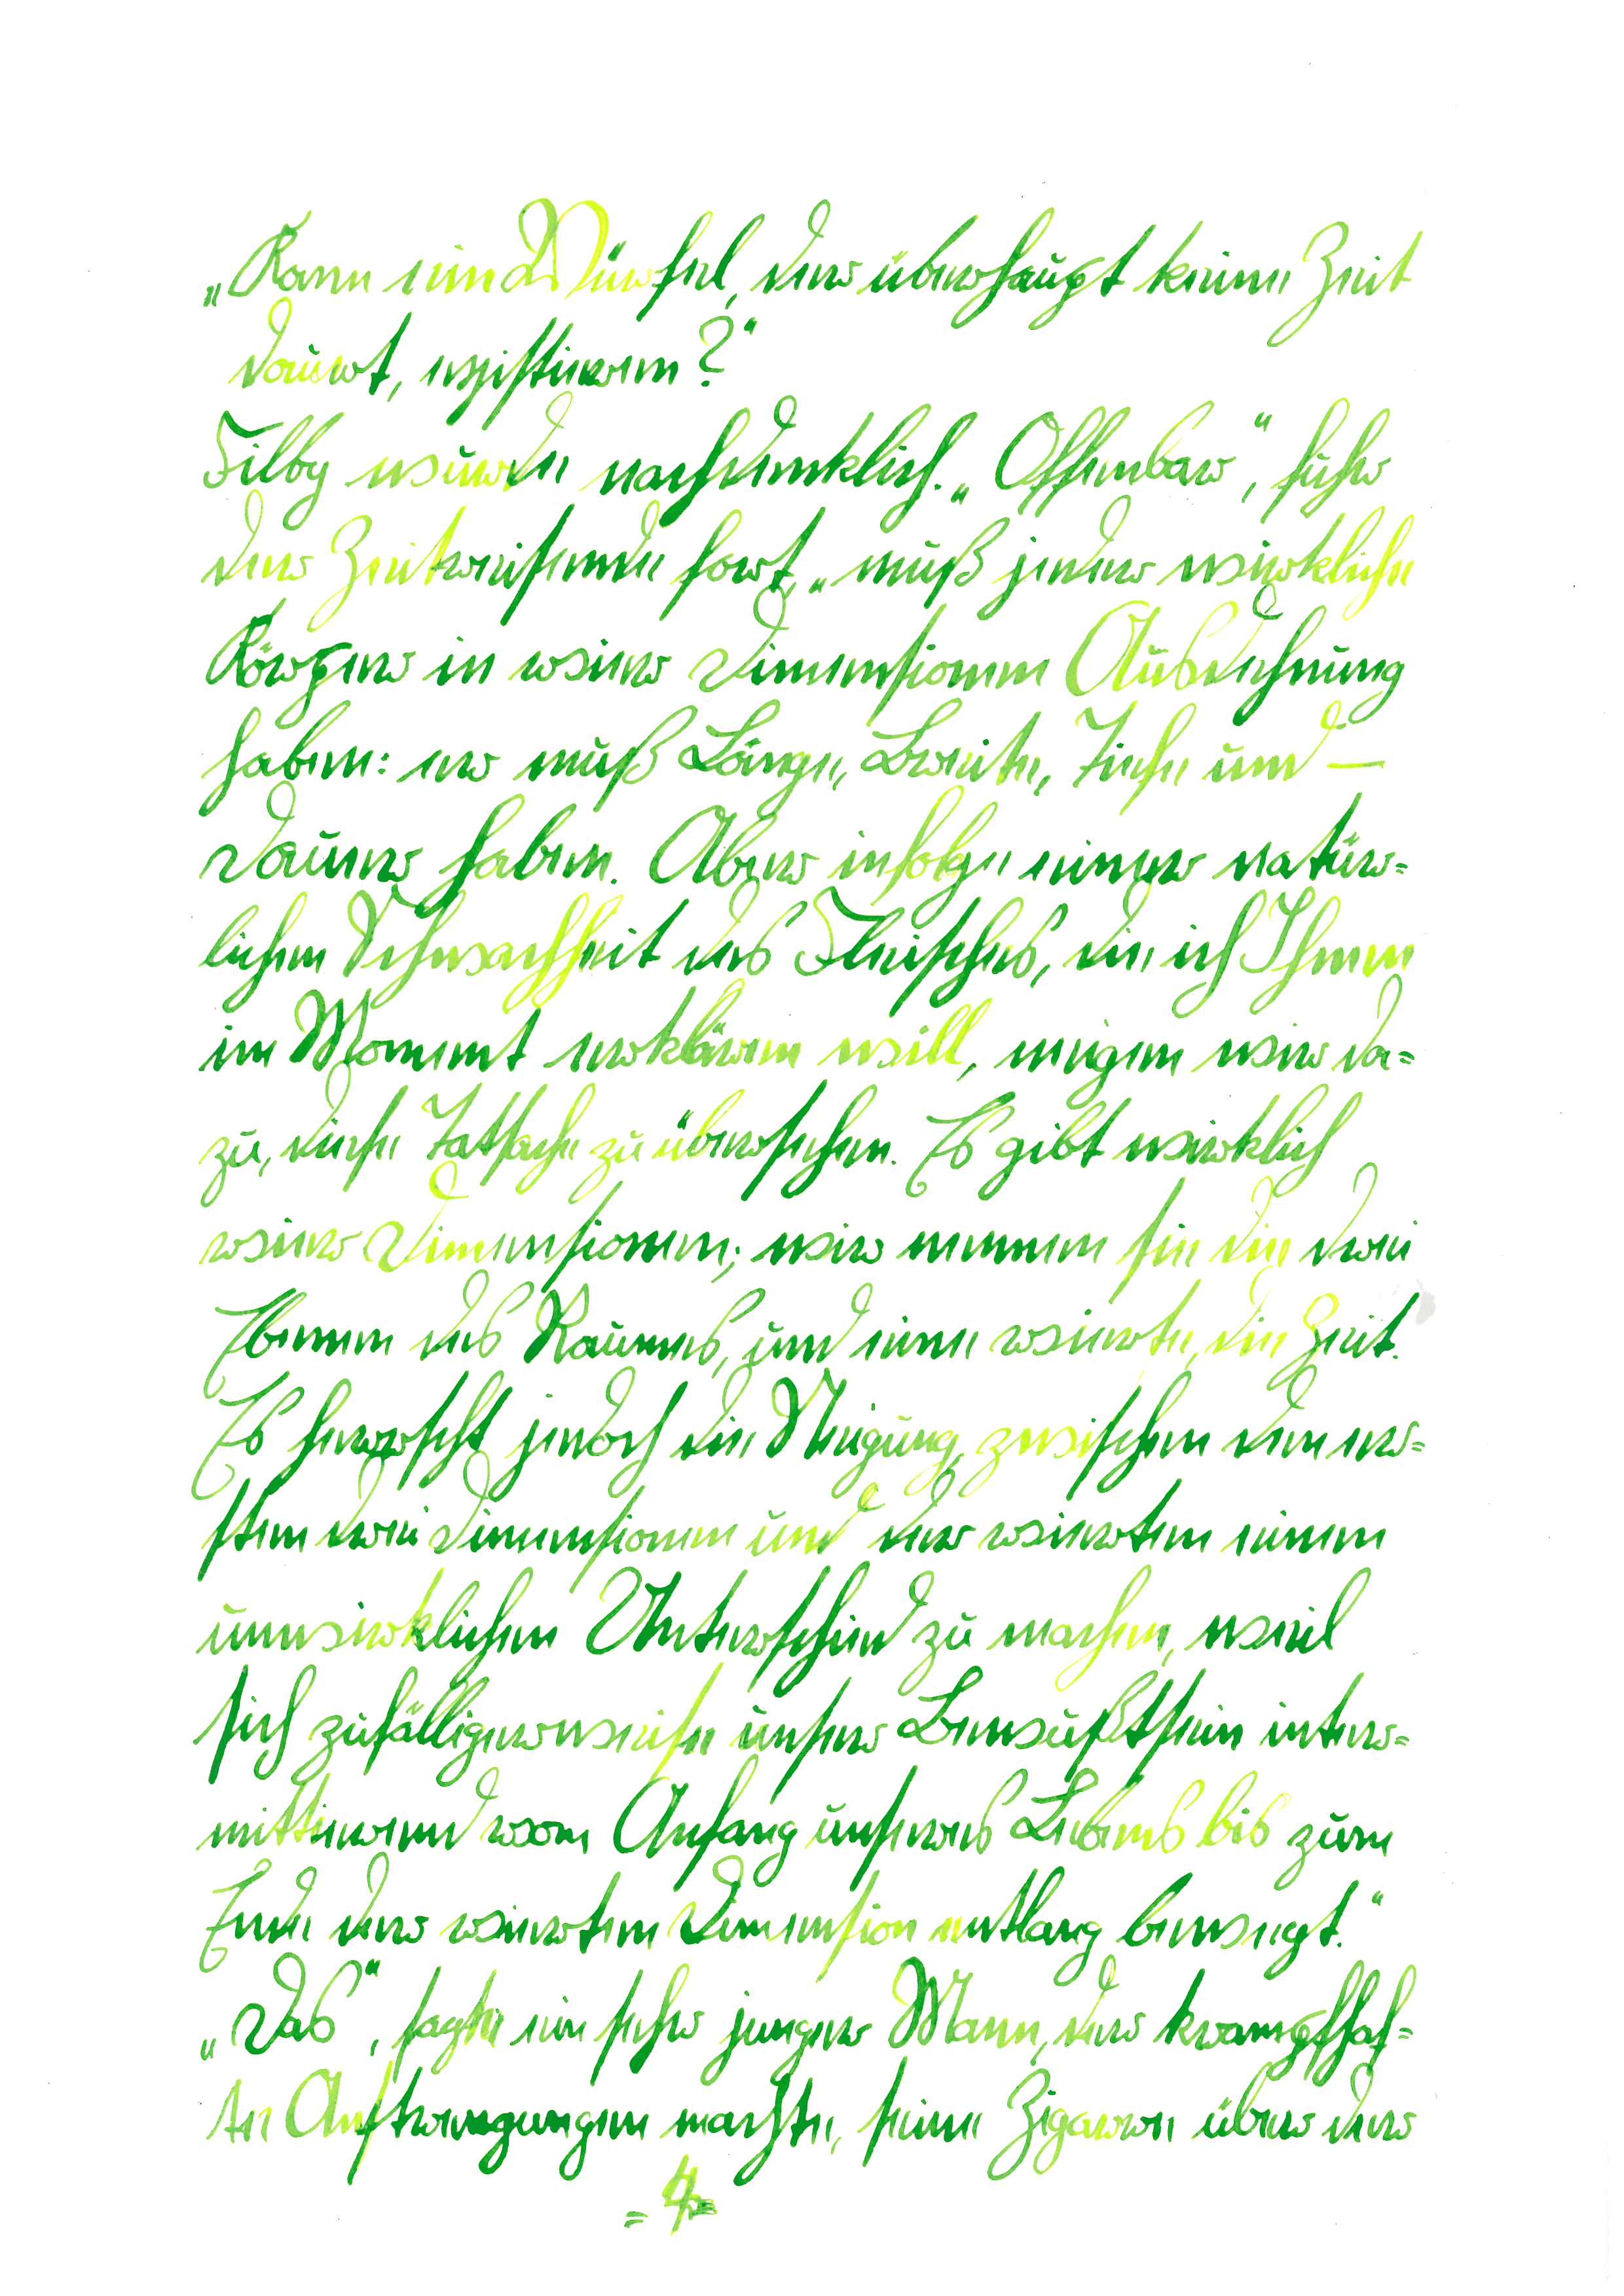 „Kann ein Würfel, der überhaupt keine Zeit
dauert, existieren?“
Filby wurde nachdenklich. „Offenbar“, fuhr
der Zeitreisende fort, „muß jeder wirkliche
Körper in vier Dimensionen Ausdehnung
haben: er muß Länge, Breite, Tiefe und —
Dauer haben. Aber infolge einer natür=
lichen Schwachheit des Fleisches, die ich Ihnen
im Moment erklären will, neigen wir da=
zu, diese Tatsache zu übersehen. Es gibt wirklich
vier Dimensionen; wir nennen sie die drei
Ebenen des Raumes, und eine vierte, die Zeit.
Es herrscht jedoch die Neigung, zwischen den er=
sten drei Dimensionen und der vierten einen
unwirklichen Unterschied zu machen, weil
sich zufälligerweise unser Bewußtsein inter=
mittierend vom Anfang unseres Lebens bis zum
Ende der vierten Dimension entlang bewegt.“
„Das“, sagte ein sehr junger Mann, der krampfhaf=
te Anstrengungen machte, seine Zigarre über der
= 4 =